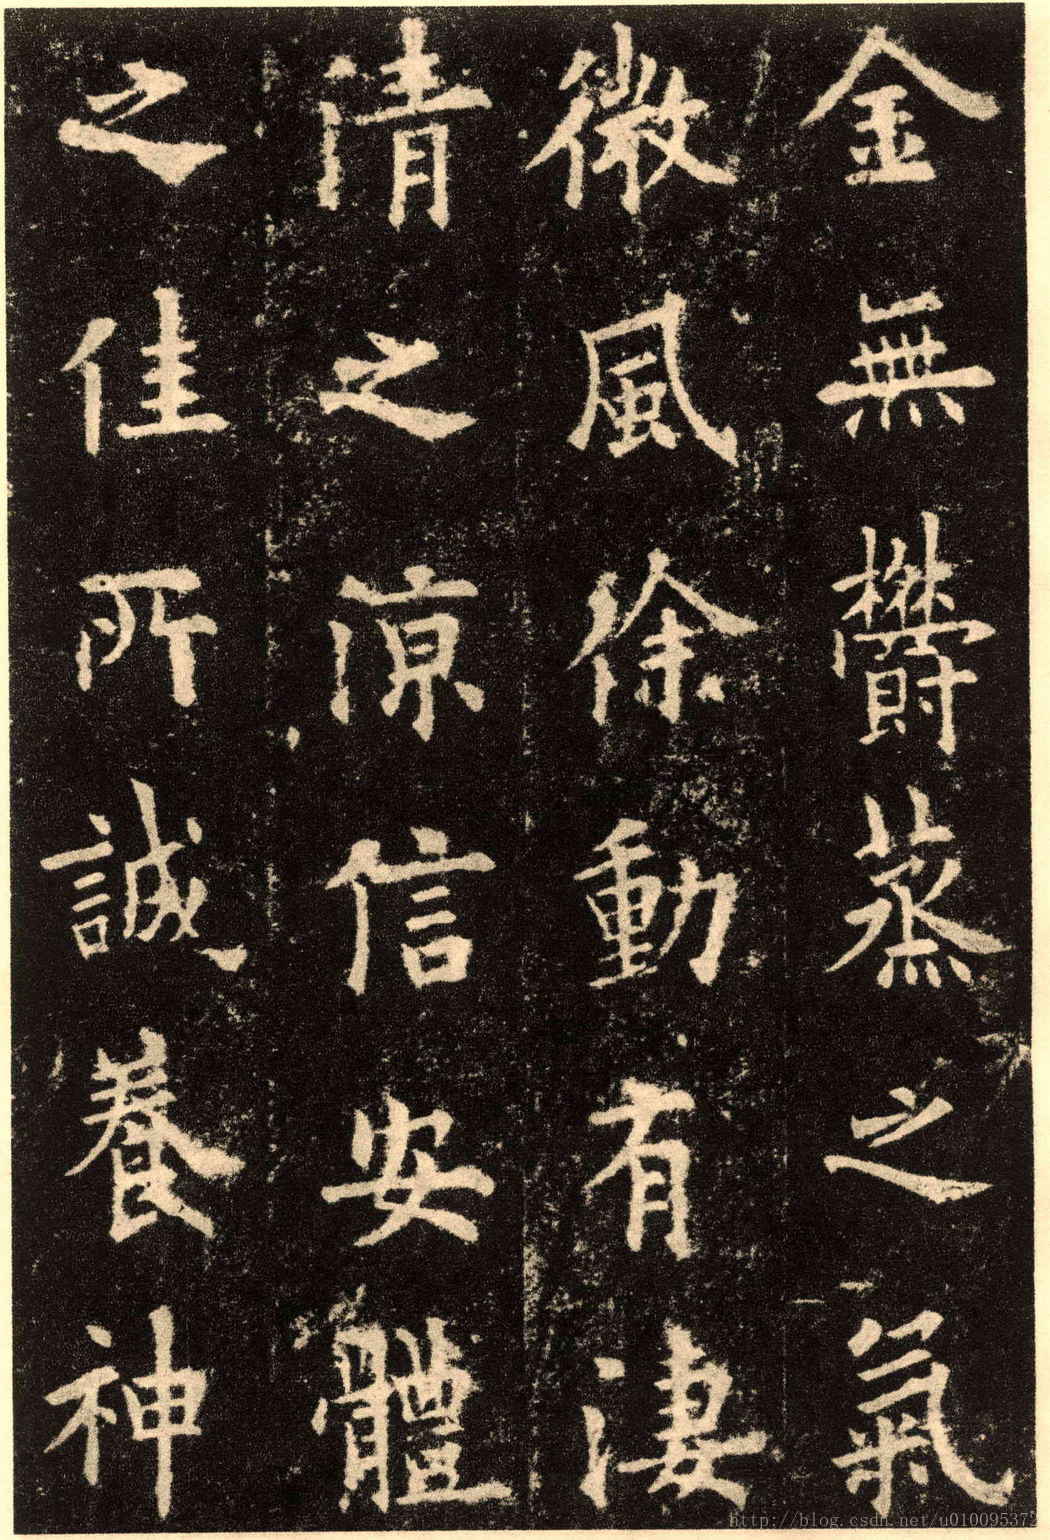 金無欎蒸之氣
微風徐動有淒
清之凉信安體
之佳所誠養神
http://blog.csdn.net/u010095372